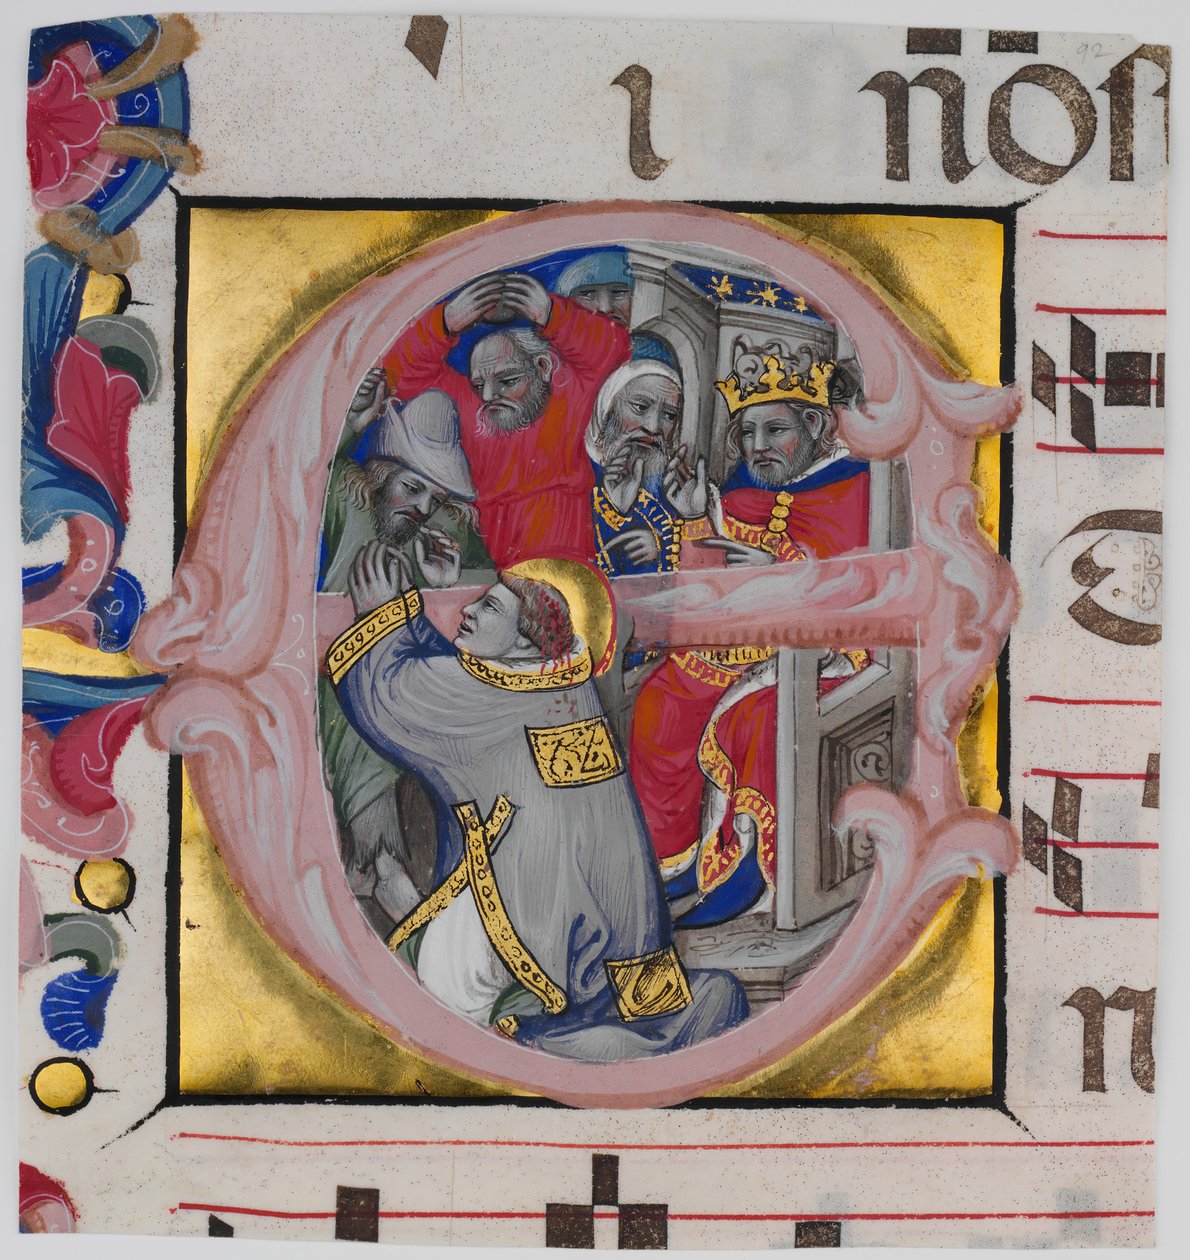 92
i noſ
E T
n